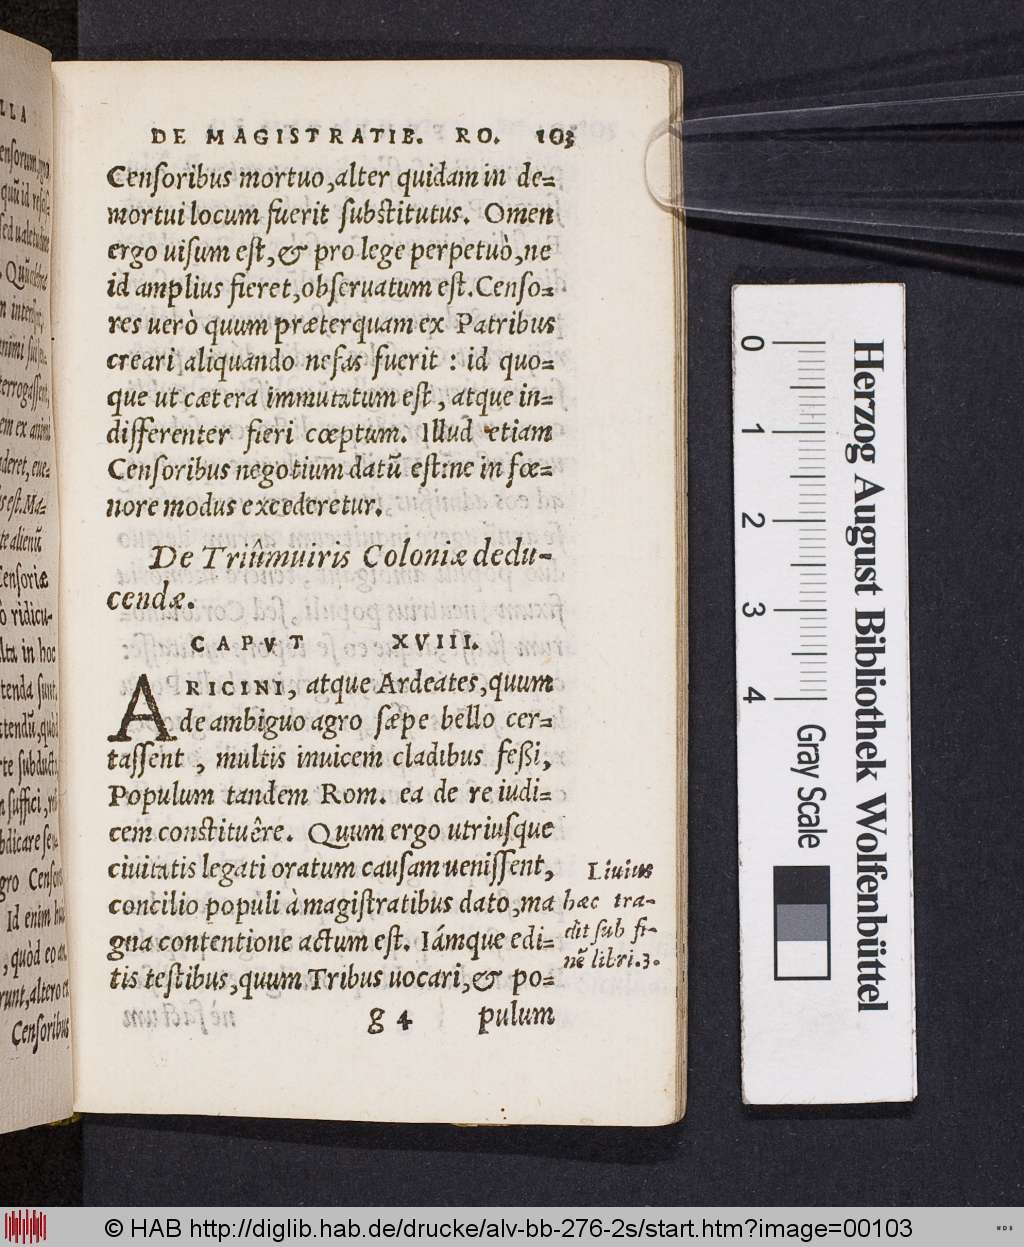 DE MAGISTRATIB. RO. 103
Cenſoribus mortuo, alter quidam in de=
mortui locum fuerit ſubſtitutus. Omen
ergo uiſum eſt, & pro lege perpetuò, ne
id amplius fieret, obſeruatum eſt. Cenſo=
res uerò quum præterquam ex Patribus
creari aliquando nefas fuerit : id quo=
que ut cætera immutatum eſt, atque in=
differenter fieri cœptum. Illud etiam
Cenſoribus negotium datũ eſt: ne in fœ=
nore modus excederetur.
De Triûmuiris Coloniæ dedu-
cendæ.
CAPVT XVIII.
ARICINI, atque Ardeates, quum
de ambiguo agro ſæpe bello cer=
taſſent, multis inuicem cladibus feßi,
Populum tandem Rom. ea de re iudi=
cem conſtituêre. Quum ergo utriuſque
ciuitatis legati oratum cauſam ueniſſent,
concilio populi à magiſtratibus dato, ma
gna contentione actum eſt. Iámque edi=
tis teſtibus, quum Tribus uocari, & po=
g 4 pulum
Liuius
hæc tra-
dit ſub fi-
nẽ libri.3.
LLA
Quũ
in
ſed
eſt. Ma=
te alienũ
Cenſoriæ
ridicu-
in hoc
tenda ſunt,
Id enim
, quòd
Cenſoribus
0 1 2 3 4
Gray Scale
Herzog August Bibliothek Wolfenbüttel
© HAB http://diglib.hab.de/drucke/alv-bb-276-2s/start.htm?image=00103